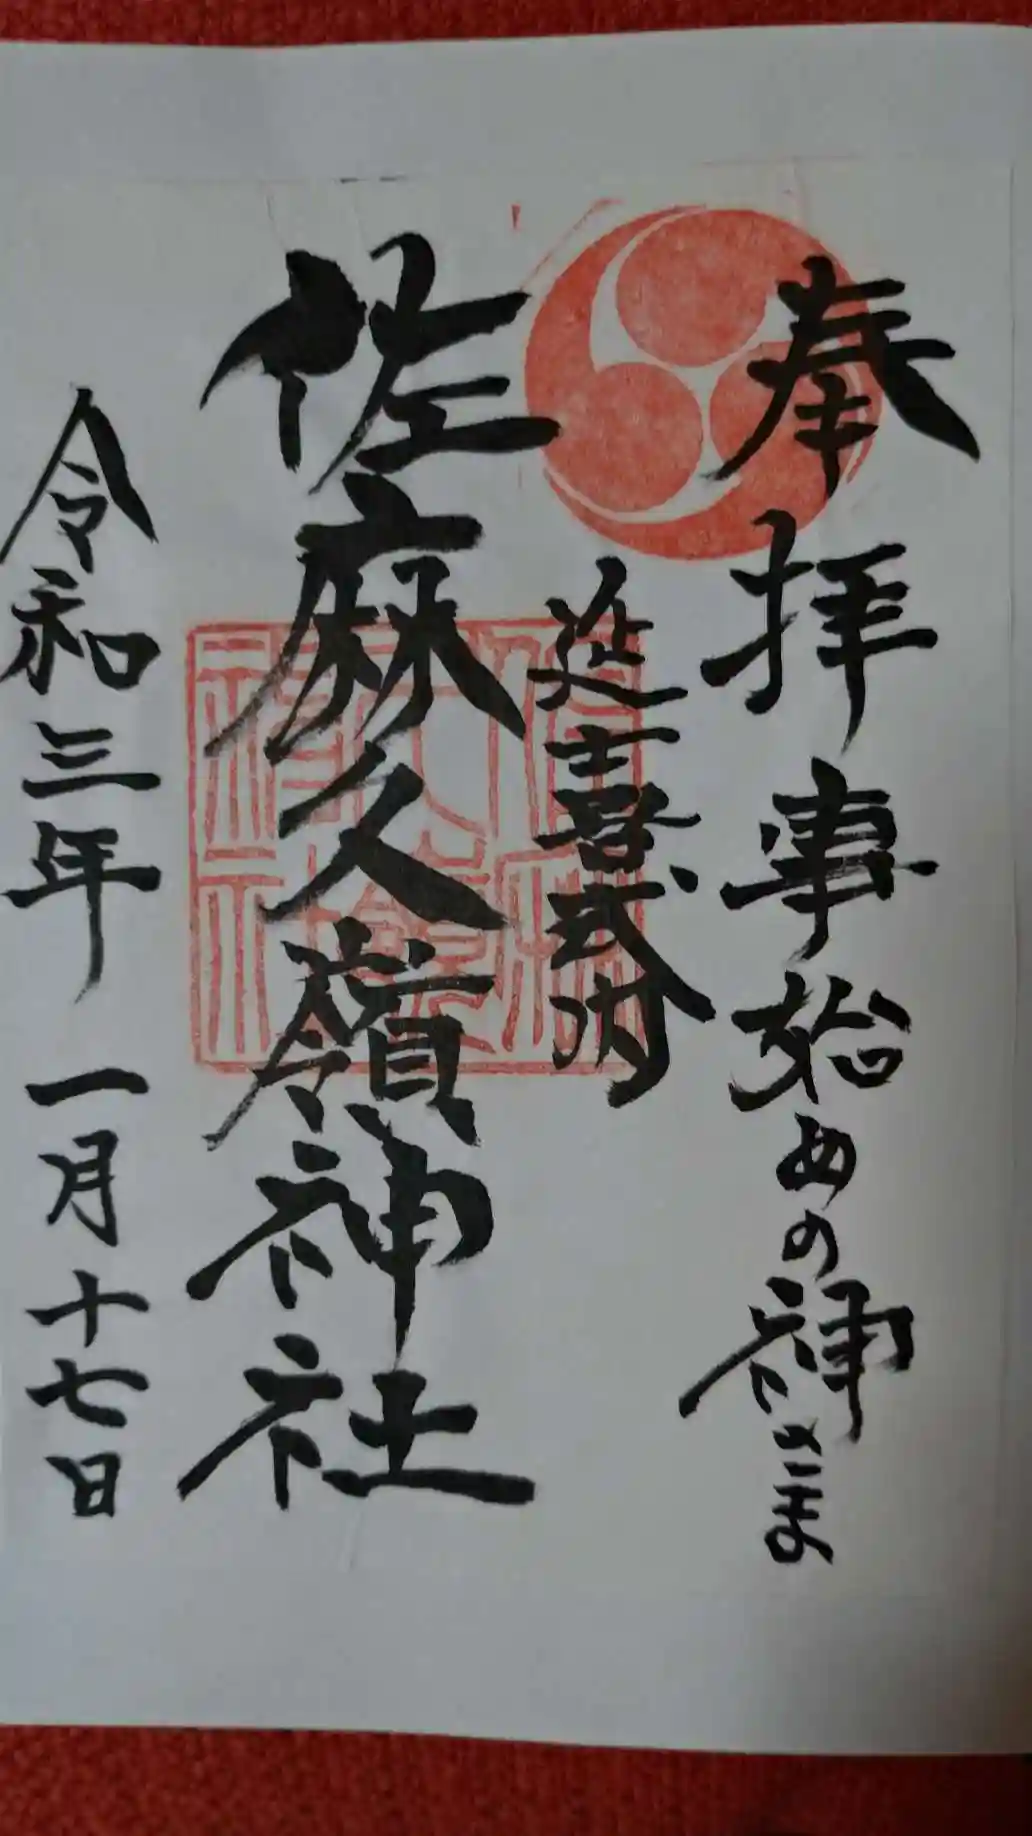 奉拝 事始めの神さま
延喜式内
佐麻久嶺神社
令和三年 一月十七日